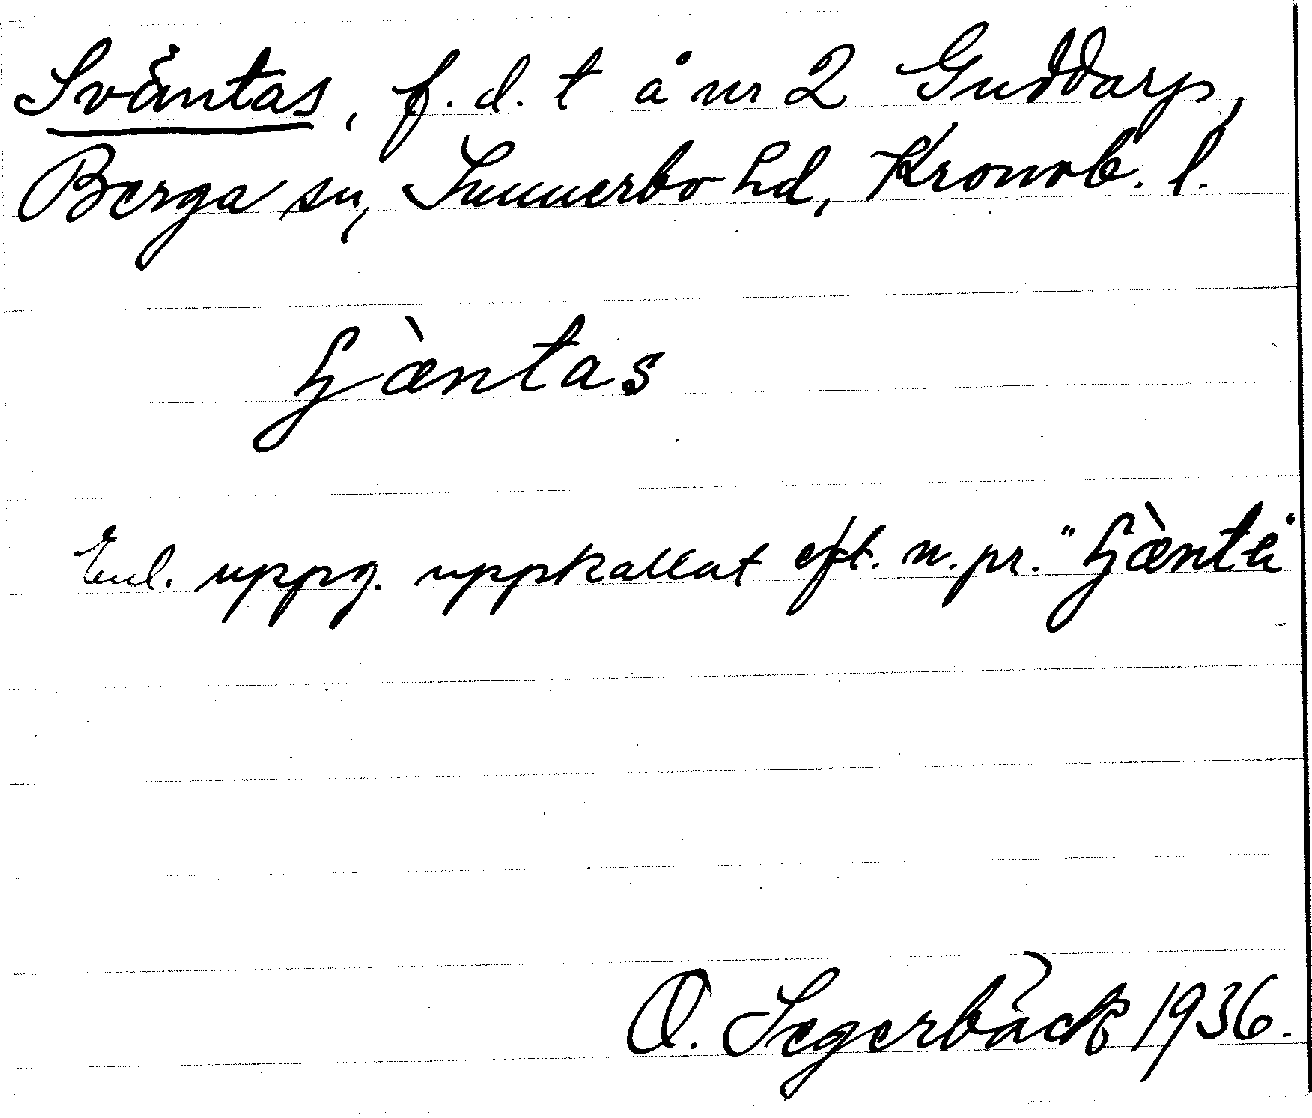 Sväntas, f.d. t å nr 2 Guddarp,
Berga sn, Sunnerbo hd, Kronob. l.
ɧæ̀ntas
Enl. uppg. uppkallat eft. n. pr. "ɧæ̀nte"
O. Segerbäck 1936.